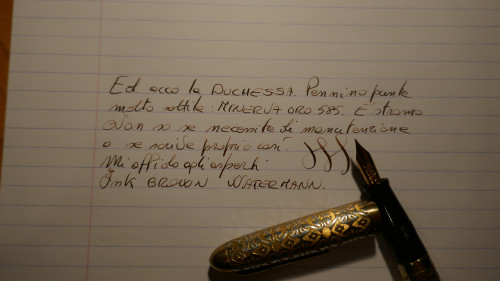 Ed ecco la DUCHESSA. Pennino punta
molto sottile: MINERVA ORO 585. È strano
Non so se necessita di manutenzione
o se scrive proprio così.
Mi affido agli esperti
Ink BROWN WATERMANN.